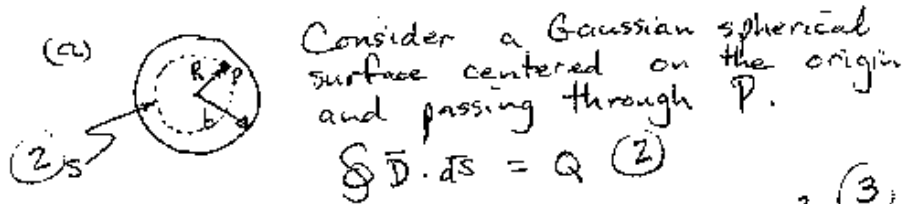 (a)
Consider a Gaussian spherical
surface centered on the origin
and passing through P.
R P
b
② S
∯ D̄ · d̄S = Q ②
③